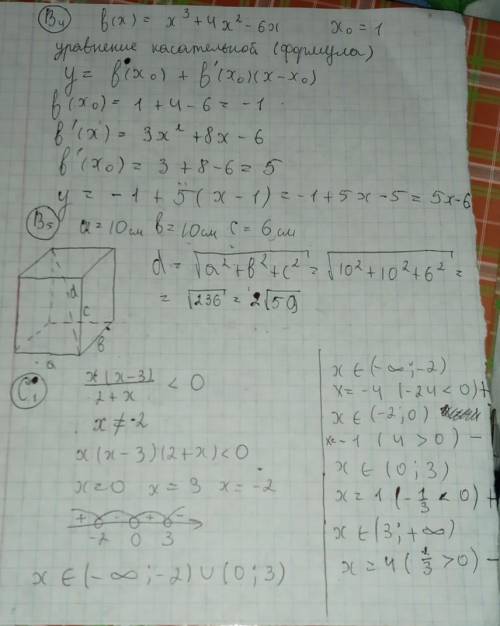 В₄ f(x) = x³ + 4x² - 6x x₀ = 1
уравнение касательной (формула)
y = f(x₀) + f'(x₀)(x-x₀)
f(x₀) = 1 + 4 - 6 = -1
f'(x) = 3x² + 8x - 6
f'(x₀) = 3 + 8 - 6 = 5
y = -1 + 5(x - 1) = -1 + 5x - 5 = 5x-6
В₅ a = 10 см в = 10 см c = 6 см
d = √(a² + в² + c²) = √(10² + 10² + 6²) =
= √236 = 2√59
d
c
в
a
С₁ x(x-3)/(2+x) < 0
x ≠ -2
x(x-3)(2+x) < 0
x = 0 x = 3 x = -2
+ - + -
-2 0 3
x ∈ (-∞; -2) ∪ (0; 3)
x ∈ (-∞; -2)
x = -4 (-24 < 0) +
x ∈ (-2; 0)
x = -1 (4 > 0) -
x ∈ (0; 3)
x = 1 (-1/3 < 0) +
x ∈ (3; +∞)
x = 4 (1/3 > 0) -